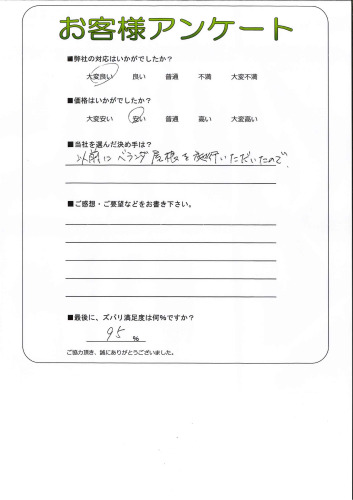 お客様アンケート
■弊社の対応はいかがでしたか？
大変良い 良い 普通 不満 大変不満
■価格はいかがでしたか？
大変安い 安い 普通 高い 大変高い
■当社を選んだ決め手は？
以前にベランダ屋根を施行いただいたので
■ご感想・ご要望などをお書き下さい。
■最後に、ズバリ満足度は何％ですか？
95 ％
ご協力頂き、誠にありがとうございました。